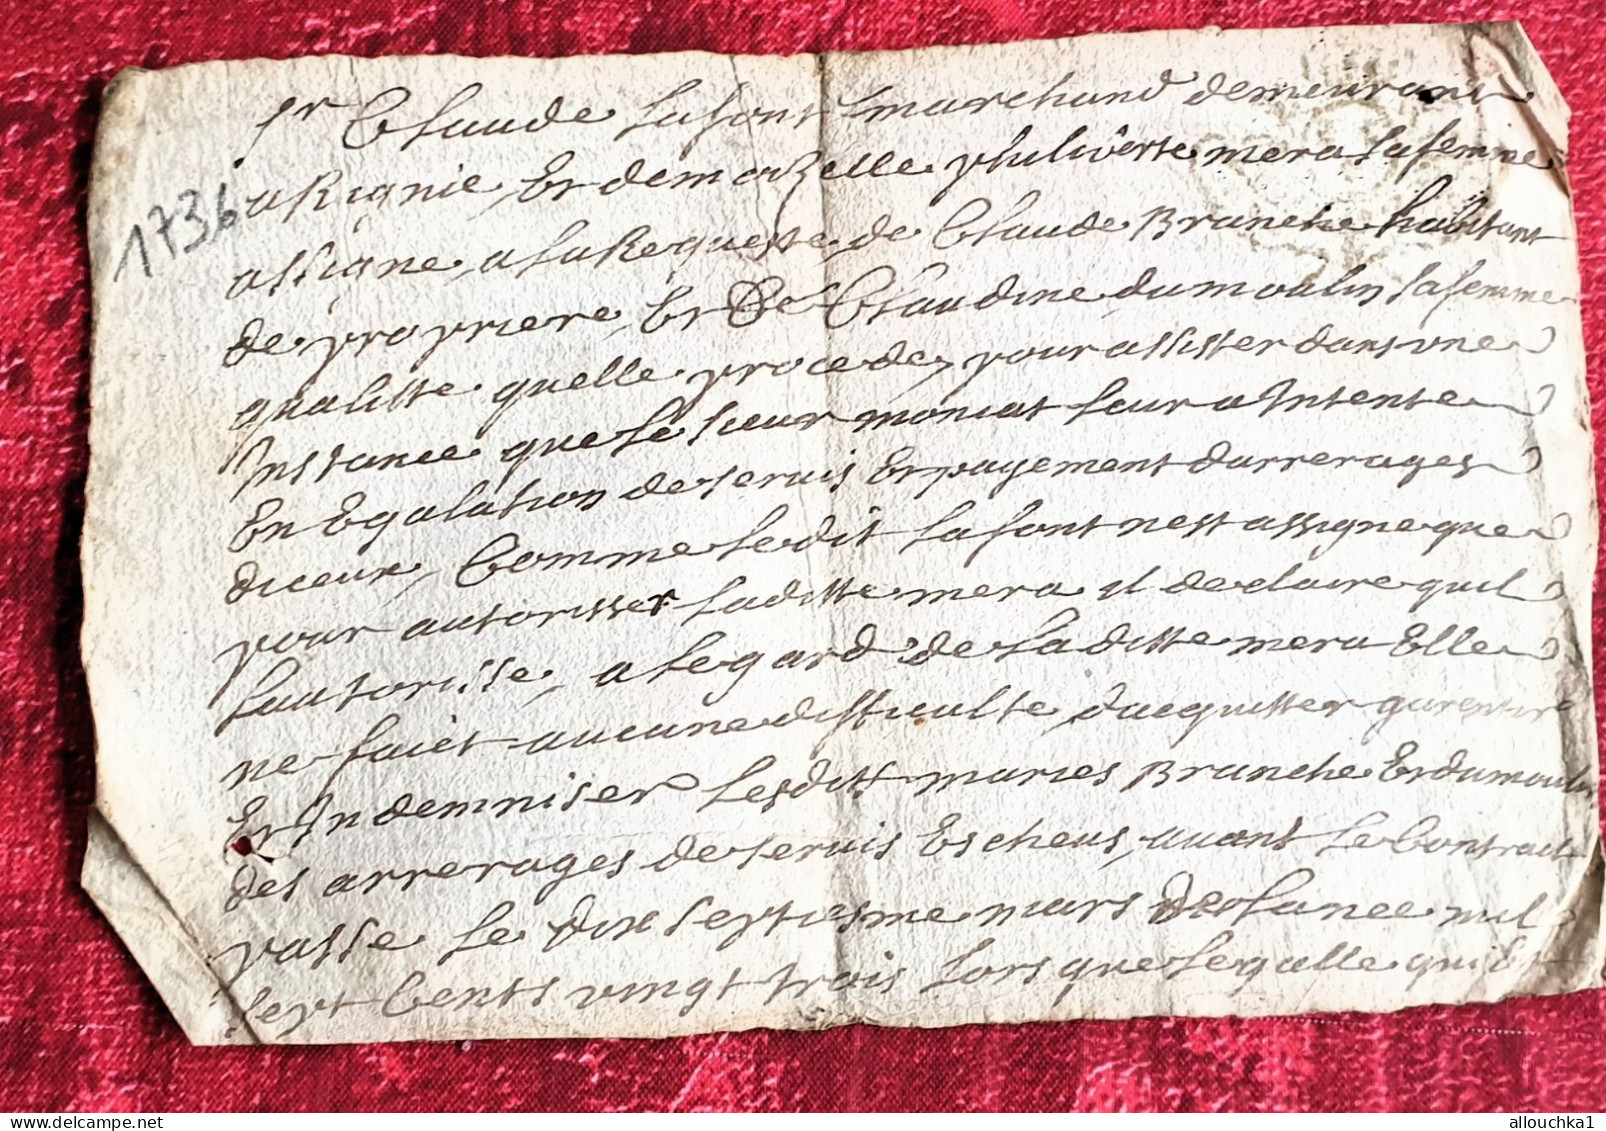 1736
Sr Claude Lafont marchand demeurant
a Rignie, Et demoizelle philiberte mera sa femme
assigne, a la Requeste de Claude Branche habitant
de propriere, Et De Claudine dumoulin sa femme
qualitte quelle procede, pour assister dans une
Instance que le sieur moniat leur a Intente
En Egalation de servis Et payement darrerages
diceux, Comme Ledit Lafont nest assigne que
pour autorisser Laditte mera il declaire quil
Lautorisse, a Legard de Laditte mera Elle
ne faict aucune difficulte, dacquitter garentir
Et Indemniser Lesdits maries Branche Et dumoulin
des arrerages de servis Escheus, avant Le Contract
passe Le dix septiesme mars de Lanee mil
sept Cents vingt trois Lors que Legalle
allouchka1